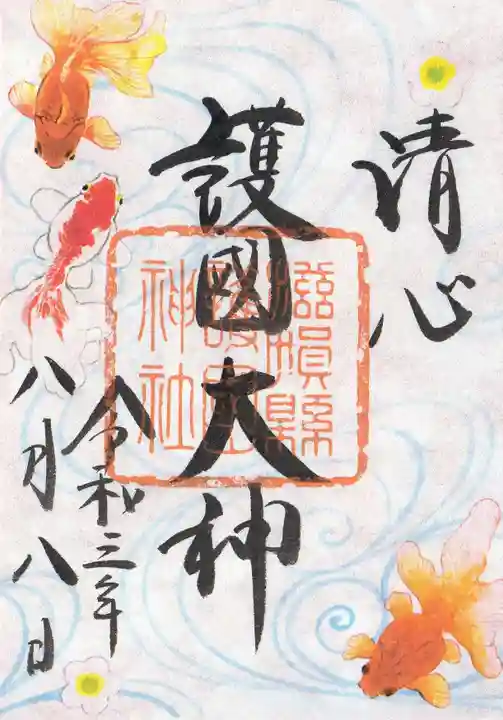 清心
護國大神
滋賀縣
護國
神社
令和三年
八月八日